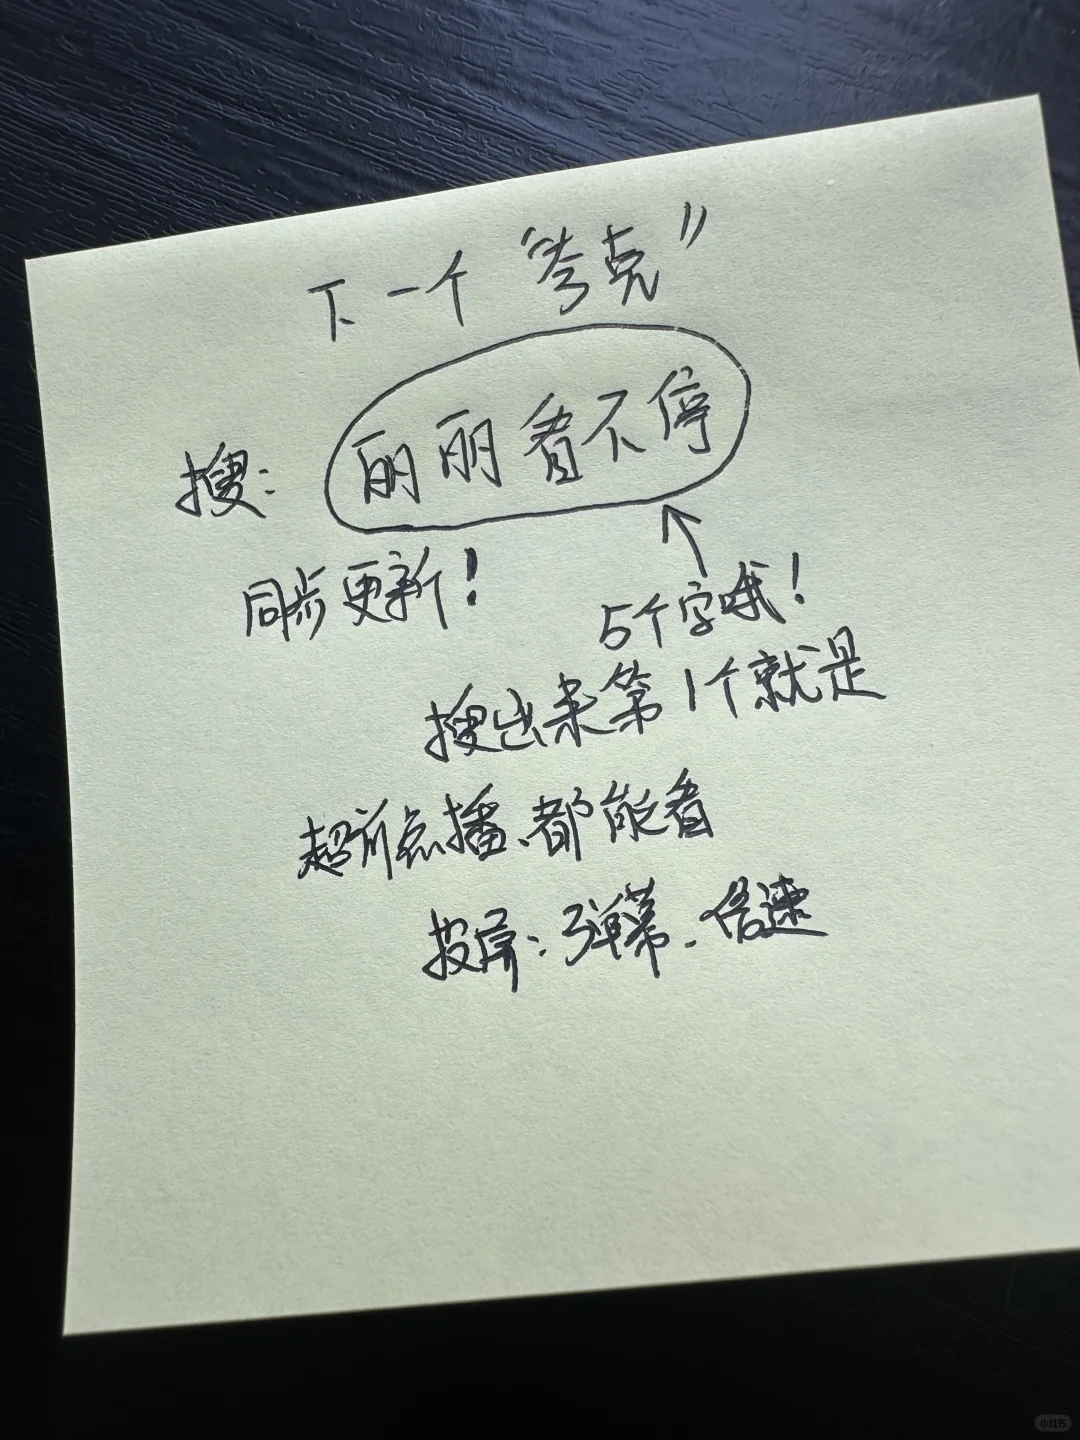 下一个“夸克”
搜：丽丽看不停
同步更新！
5个字哦！
搜出来第1个就是
超前点播、都能看
投屏：弹幕．倍速
小红书